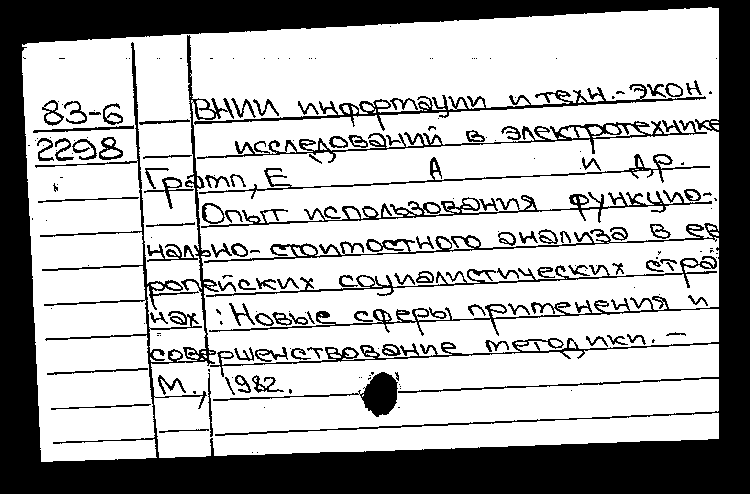 83-6 ВНИИ информации и техн.-экон.
2298 исследований в электротехнике
Грамп, Е А и др.
Опыт использования функцио-
нально-стоимостного анализа в ев
ропейских социалистических стра
нах : Новые сферы применения и
совершенствование методики. –
М., 1982.